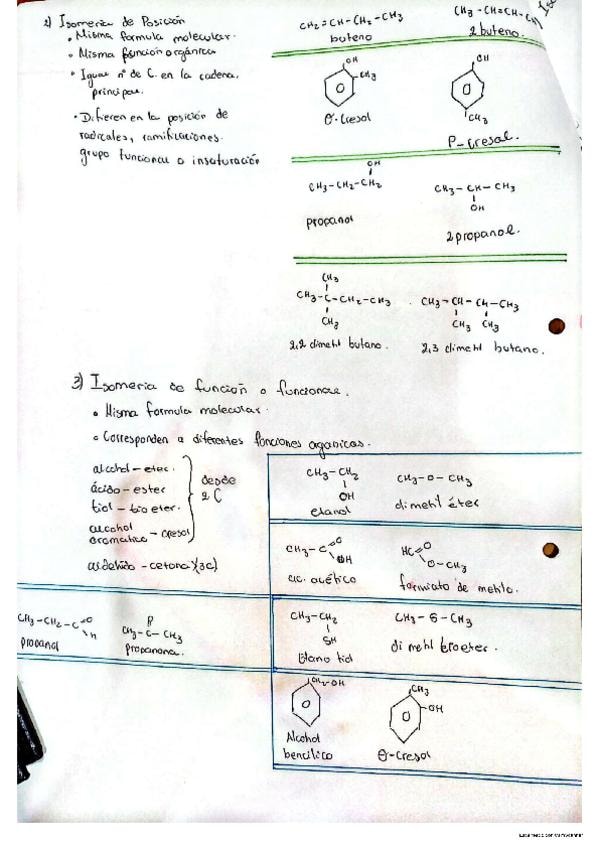 2) Isomeria de Posición
• Misma formula molecular.
• Misma función orgánica
• Igual nº de C. en la cadena.
principal.
• Difieren en la posición de
radicales, ramificaciones.
grupo funcional o insaturación
CH2=CH-CH2-CH3
buteno
CH3-CH=CH-CH3
2 buteno.
OH
CH3
O-Cresol
OH
CH3
P-Cresol.
OH
CH3-CH2-CH2
propanol
CH3-CH-CH3
OH
2 propanol.
CH3
CH3-C-CH2-CH3
CH3
2,2 dimetil butano.
CH3-CH-CH-CH3
CH3 CH3
2,3 dimetil butano.
3) Isomeria de función o funcional.
• Misma formula molecular.
• Corresponden a diferentes funciones organicas.
alcohol-eter.
ácido-ester
tiol-tio eter.
alcohol
aromatico-cresol
desde
2 C
aldehido-cetona (3C)
CH3-CH2
OH
etanol
CH3-O-CH3
dimetil éter
CH3-C=O
OH
ac. acético
HC=O
O-CH3
formiato de metilo.
CH3-CH2
SH
Etano tiol
CH3-S-CH3
dimetil tioeter.
CH3-CH2-C=O
H
propanal
CH3-C-CH3
propanona.
CH2-OH
Alcohol
bencilico
CH3
OH
O-Cresol